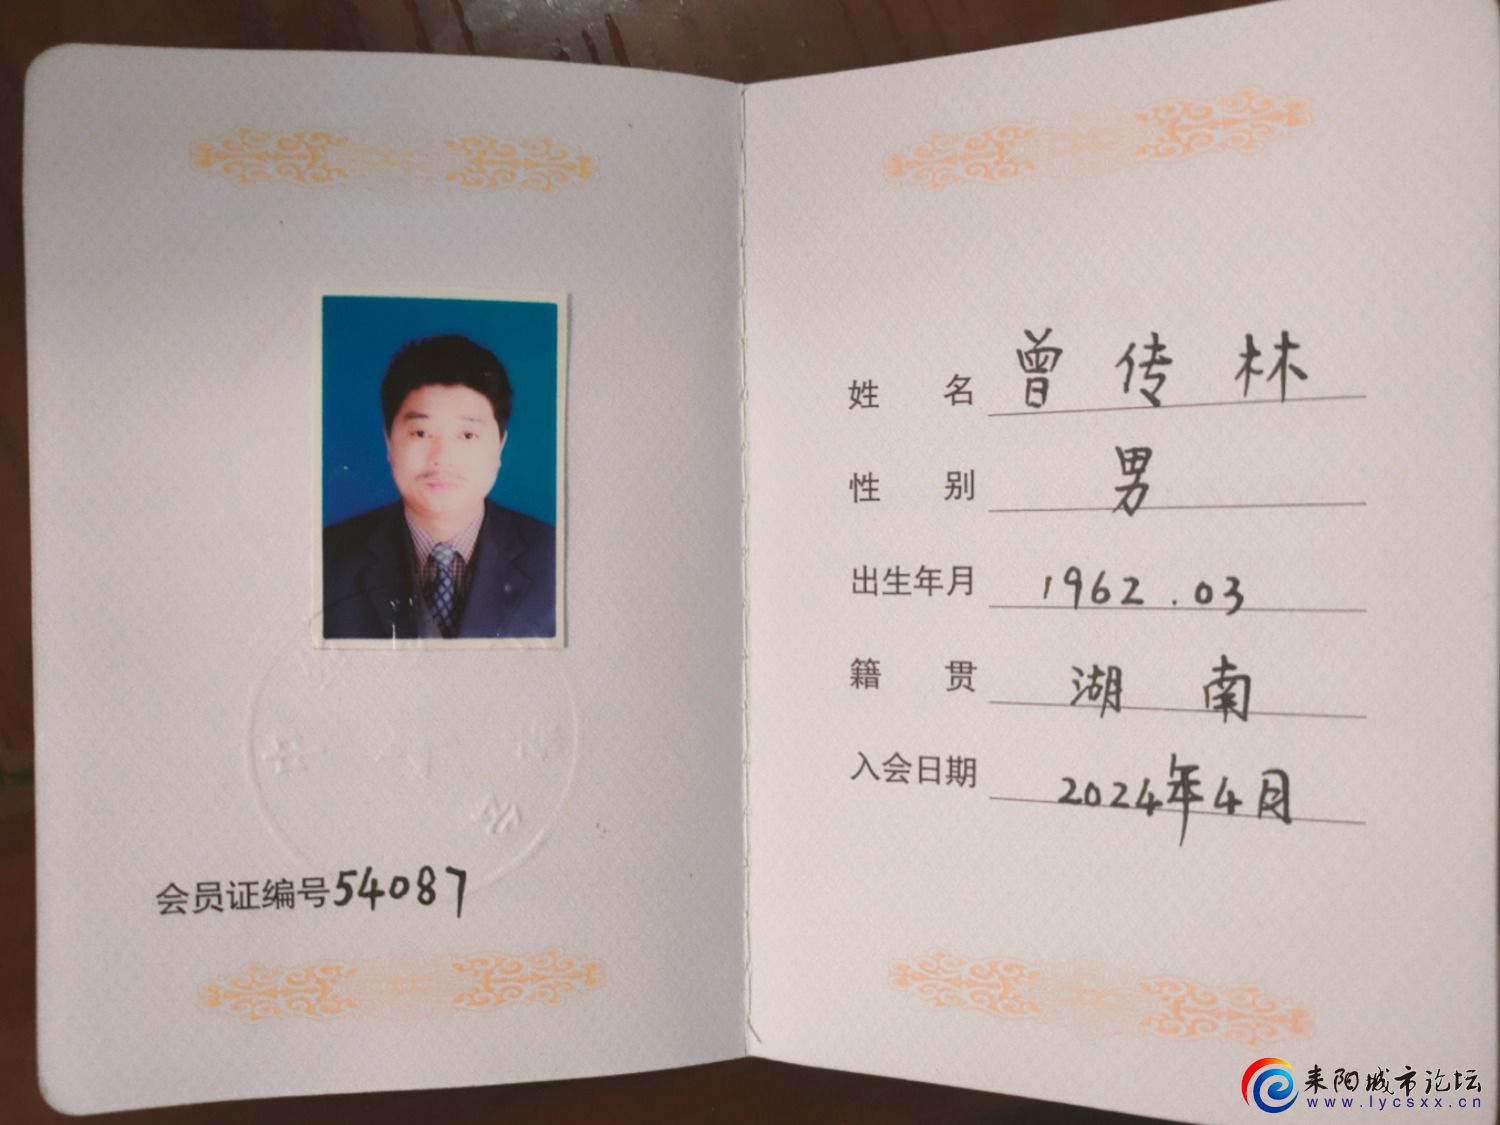 会员证编号54087
姓 名 曾传林
性 别 男
出生年月 1962.03
籍 贯 湖南
入会日期 2024年4月
耒阳城市论坛
www.lycsxx.cn